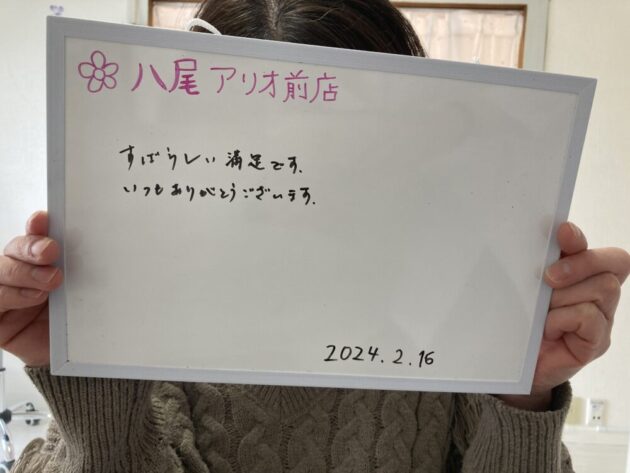 八尾アリオ前店
すばらしい満足です.
いつもありがとうございます.
2024.2.16